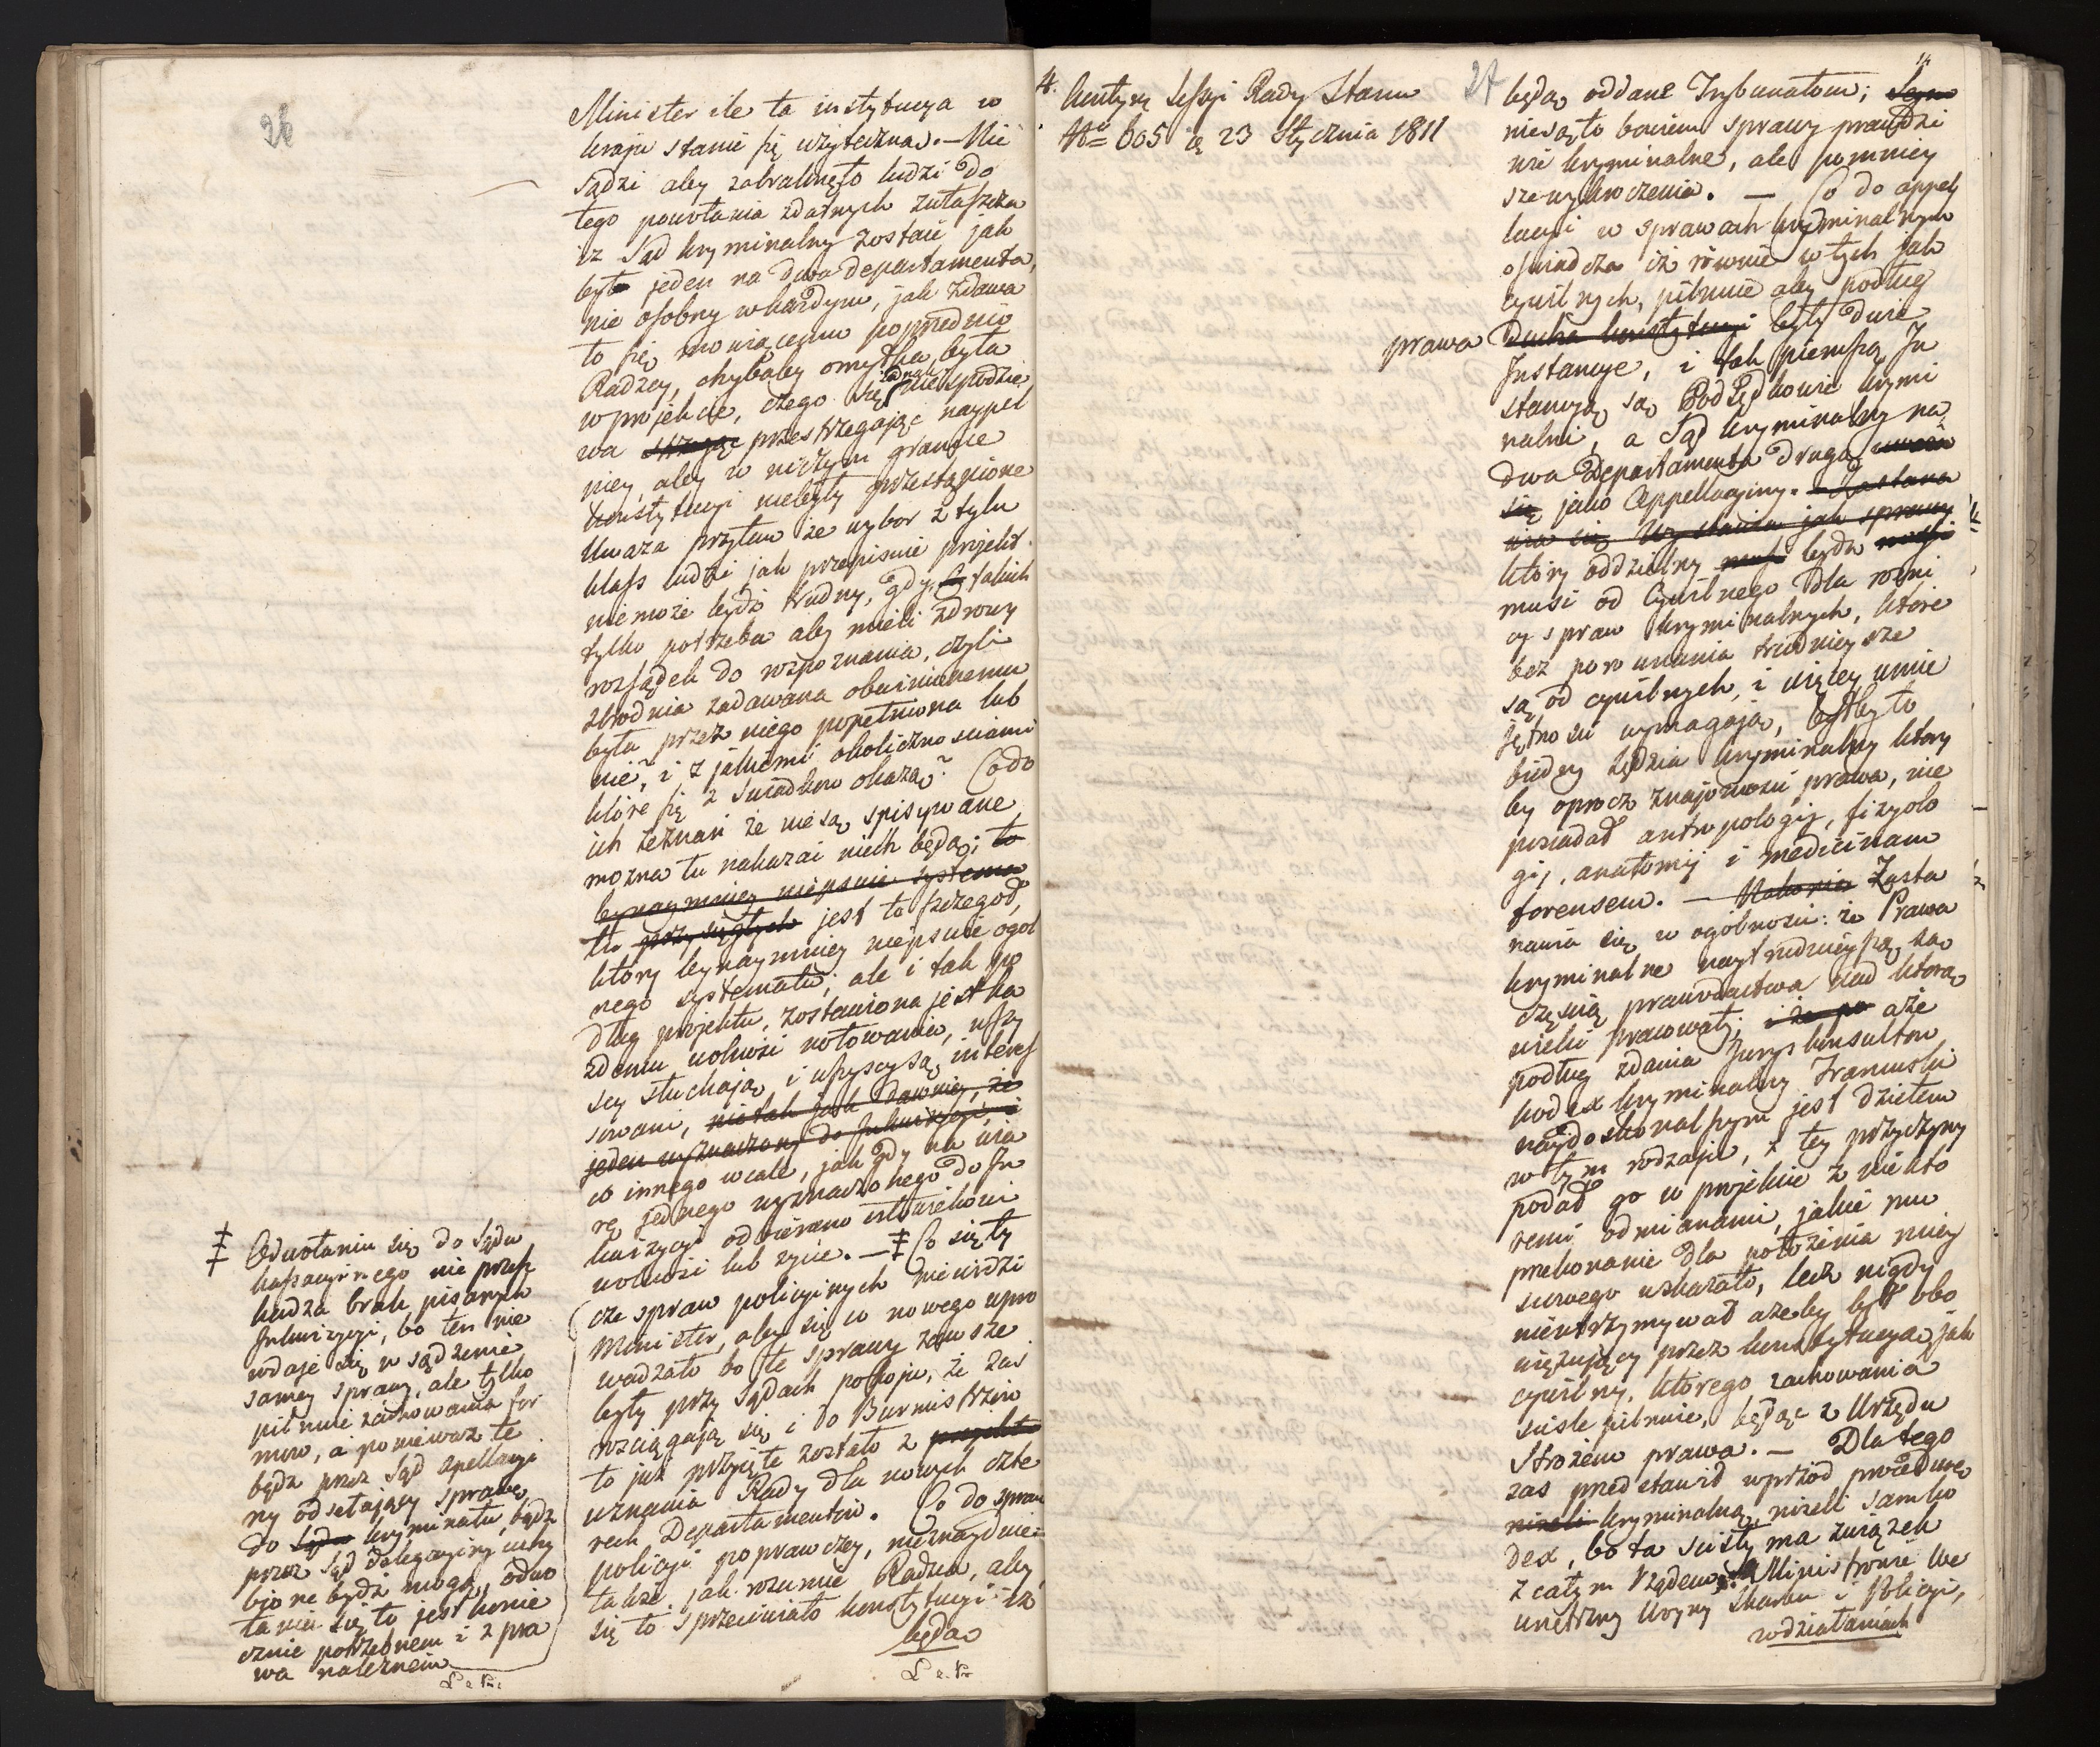 26
Minister ile ta instytucya w
kraju stanie się użyteczną. — Nie
sądzi aby zabraknęło ludzi do
tego powołania zdatnych zwłaszcza
iż Sąd kryminalny zostaie jak
był jeden na dwa departamenta,
nie osobny w każdym, jak zdawa
ło się mowiącemu poprzednio
Radzcy, chybaby omyłka była
w projekcie, czego się niespodzie
wa przestrzegając naypil
niey, aby w niczym granice
konstytucyi niebyły przestąpione
Uważa przytem że wybor z tylu
klass ludzi jak przepisuie projekt
nie może bydź trudny, gdy takich
tylko potrzeba aby mieli zdrowy
rozsądek do rozpoznania, czyli
zbrodnia zadawana obwinionemu
była przez niego popełniona lub
nie, i z jakiemi okolicznosciami
które się z swiadkow okażą? Co do
ich zeznań że nie są spisywane
można tu nakazać niech będą; to
bynaymniey niepsuie systema
tu przysięgłych jest to szczegoł,
ktory bynaymniey niepsuie ogol
nego systematu; ale i tak po
dług projektu, zostawiona jest ka
żdemu wolność notowania, wszy
scy słuchają, i wszyscy są interes
sowani, nie tak jak dawniey, że
jeden wyznaczony do Inkwizycyi, i
co innego wcale, jak gdy na wia
rę jednego wyznaczonego do In
kwizycyi odbierano człowiekowi
wolność lub życie. — ‡ Co się ty
cze spraw policyinych nie widzi
Minister, aby się co nowego upro
wadzało bo te sprawy zawsze
były przy Sądach pokoju, że zas
rozciągają się i do Burmistrzow
to już przyięte zostało z projektu
uznania Rady dla nowych czte
rech Departamentow. Co do spraw
policyi poprawczey, nieznayduie
także, jak rozumie Radzca, aby
się to sprzeciwiało konstytucyi iż
będą
‡ Odwołaniu się do Sądu
kassacyinego nie przesz
kadza brak pisanych
Inkwizycyi, bo ten nie
wdaje się w sądzenie
samey sprawy, ale tylko
pilnuie zachowania for
mow, a ponieważ te
bądź przez Sąd apellacyi
ny odsełaiący sprawę
do Sądu kryminału, bądź
przez Sąd delegacyiny uchy
bione bydź mogą, odwo
łanie się to jest konie
cznie potrzebnem i z pra
wa należnem
4. Kontyn. Sessyi Rady Stanu
No 605 ię 23 Stycznia 1811
27
będą oddane Trybunałom;
nie są to bowiem sprawy prawdzi
wie kryminalne, ale pomniey
sze wykroczenia. — Co do appel
lacyi w sprawach kryminalnych
oswiadcza iż rownie w tych jak
cywilnych, pilnuie aby podług
prawa Ducha konstytucyi były dwie
Instancye, i tak pierwszą In
stancyą są Podsędkowie krymi
nalni, a Sąd kryminalny na
dwa Departamenta drugą uważa
się jako Appellacyiny. — Zastana
wia się
ktory oddzielny bydź
musi od Cywilnego dla rożni
cy spraw kryminalnych, ktore
bez porownania trudnieysze
są od cywilnych, i więcey umie
jętnosci wymagają, byłby to
biedny sędzia kryminalny ktory
by oprocz znajomosci prawa, nie
posiadał antropologij, fizyolo
gij, anatomij i medicinam
forensem. — Zasta
nawia się w ogolnosci: że Prawa
kryminalne naytrudnieyszą są
częścią prawodactwa nad ktorą
wieki pracowały; i że po aże
podług zdania Jurys konsultow
kodex kryminalny Francuski
naydoskonalszym jest dziełem
w tym rodzaju, z tey przyczyny
podał go w projekcie z niekto
remi odmianami, jakie mu
przekonanie dla położenia miey
scowego wskazało, lecz nigdy
nieutrzymywał ażeby był obo
więzujący przez konstytucyą, jak
cywilny, ktorego zachowania
scisle pilnuie, będąc z Urzędu
Strożem prawa. — Dlatego
zas przedstawił wprzod procedurę
nizeli kryminalną, nizeli sam ko
dex, bo ta scisły ma związek
z całym Rządem. Ministrowie We
wnętrzny Woyny Skarbu i Policyi,
w działaniach